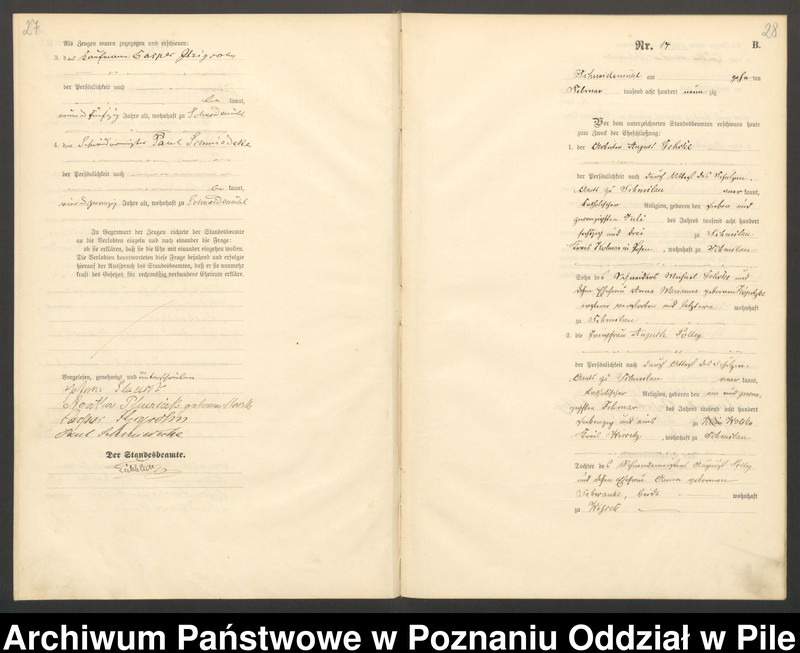 27
Als Zeugen waren zugezogen und erschienen:
3. der Kaufmann Casper
der Persönlichkeit nach
be kannt,
Jahre alt, wohnhaft zu Schneidemühl
4. der Paul Schmiedecke
der Persönlichkeit nach
be kannt,
Jahre alt, wohnhaft zu Schneidemühl
In Gegenwart der Zeugen richtete der Standesbeamte
an die Verlobten einzeln und nach einander die Frage:
ob sie erklären, daß sie die Ehe mit einander eingehen wollen.
Die Verlobten beantworteten diese Frage bejahend und erfolgte
hierauf der Ausspruch des Standesbeamten, daß er sie nunmehr
kraft des Gesetzes für rechtmäßig verbundene Eheleute erkläre.
Vorgelesen, genehmigt und unterschrieben
geborene
Caspar
Paul Schmiedecke
Der Standesbeamte.
28
Nr. 17
B.
Schneidemühl am zehn ten
Februar tausend acht hundert neun zig
Vor dem unterzeichneten Standesbeamten erschienen heute
zum Zweck der Eheschließung:
1. der Arbeiter August Gehrke
der Persönlichkeit nach durch Attest des Schulzen-
Amts zu Schmilau aner kannt,
katholischer Religion, geboren den sieben und
zwanzigsten Juli des Jahres tausend acht hundert
sechszig und drei zu Schmilau
Kreis Kolmar in Posen, wohnhaft zu Schmilau
Sohn des Schneiders Michael Gehrke und
dessen Ehefrau Anna Marianna geborenen
ersterer verstorben und letztere wohnhaft
zu Schmilau
2. die Jungfrau Auguste Polley
der Persönlichkeit nach durch Attest des Schulzen-
Amts zu Schmilau aner kannt,
katholischer Religion, geboren den ein und zwan-
zigsten Februar des Jahres tausend acht hundert
siebenzig und eins zu
Kreis Wirsitz, wohnhaft zu Schmilau
Tochter des August Polley
und dessen Ehefrau Anna geborenen
beide wohnhaft
zu Wissek
Archiwum Państwowe w Poznaniu Oddział w Pile